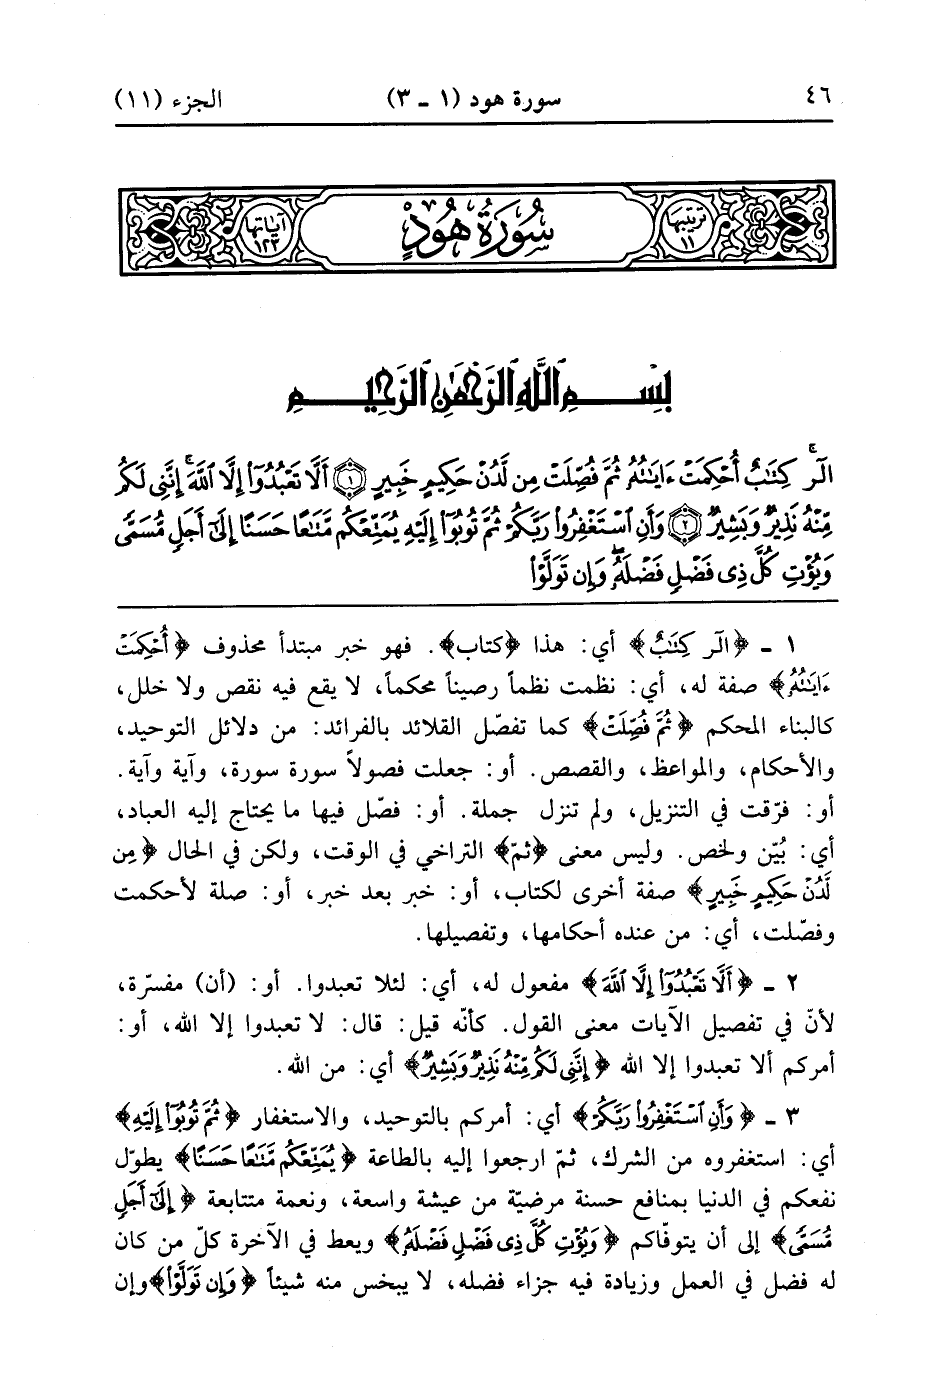 ٤٦ سورة هود (١ ـ ٣) الجزء (١١)
ترتيبها ١١ سُورَةُ هُودٍ آياتها ١٢٣
بِسْمِ ٱللَّهِ ٱلرَّحْمَٰنِ ٱلرَّحِيمِ
الٓرۚ كِتَٰبٌ أُحْكِمَتْ ءَايَٰتُهُۥ ثُمَّ فُصِّلَتْ مِن لَّدُنْ حَكِيمٍ خَبِيرٍ ١ أَلَّا تَعْبُدُوٓا۟ إِلَّا ٱللَّهَۚ إِنَّنِى لَكُم
مِّنْهُ نَذِيرٌ وَبَشِيرٌ ٢ وَأَنِ ٱسْتَغْفِرُوا۟ رَبَّكُمْ ثُمَّ تُوبُوٓا۟ إِلَيْهِ يُمَتِّعْكُم مَّتَٰعًا حَسَنًا إِلَىٰٓ أَجَلٍ مُّسَمًّى
وَيُؤْتِ كُلَّ ذِى فَضْلٍ فَضْلَهُۥۖ وَإِن تَوَلَّوْا۟
١ ـ ﴿الٓر كِتَٰبٌ﴾ أي: هذا ﴿كتاب﴾. فهو خبر مبتدأ محذوف ﴿أُحْكِمَتْ
ءَايَٰتُهُۥ﴾ صفة له، أي: نظمت نظماً رصيناً محكماً، لا يقع فيه نقص ولا خلل،
كالبناء المحكم ﴿ثُمَّ فُصِّلَتْ﴾ كما تفصّل القلائد بالفرائد: من دلائل التوحيد،
والأحكام، والمواعظ، والقصص. أو: جعلت فصولاً سورة سورة، وآية وآية.
أو: فرّقت في التنزيل، ولم تنزل جملة. أو: فصّل فيها ما يحتاج إليه العباد،
أي: بُيّن ولخص. وليس معنى ﴿ثمّ﴾ التراخي في الوقت، ولكن في الحال ﴿مِن
لَّدُنْ حَكِيمٍ خَبِيرٍ﴾ صفة أخرى لكتاب، أو: خبر بعد خبر، أو: صلة لأحكمت
وفصّلت، أي: من عنده أحكامها، وتفصيلها.
٢ ـ ﴿أَلَّا تَعْبُدُوٓا۟ إِلَّا ٱللَّهَ﴾ مفعول له، أي: لئلا تعبدوا. أو: (أن) مفسّرة،
لأنّ في تفصيل الآيات معنى القول. كأنّه قيل: قال: لا تعبدوا إلا الله، أو:
أمركم ألا تعبدوا إلا الله ﴿إِنَّنِى لَكُم مِّنْهُ نَذِيرٌ وَبَشِيرٌ﴾ أي: من الله.
٣ ـ ﴿وَأَنِ ٱسْتَغْفِرُوا۟ رَبَّكُمْ﴾ أي: أمركم بالتوحيد، والاستغفار ﴿ثُمَّ تُوبُوٓا۟ إِلَيْهِ﴾
أي: استغفروه من الشرك، ثمّ ارجعوا إليه بالطاعة ﴿يُمَتِّعْكُم مَّتَٰعًا حَسَنًا﴾ يطوّل
نفعكم في الدنيا بمنافع حسنة مرضيّة من عيشة واسعة، ونعمة متتابعة ﴿إِلَىٰٓ أَجَلٍ
مُّسَمًّى﴾ إلى أن يتوفّاكم ﴿وَيُؤْتِ كُلَّ ذِى فَضْلٍ فَضْلَهُۥ﴾ ويعط في الآخرة كلّ من كان
له فضل في العمل وزيادة فيه جزاء فضله، لا يبخس منه شيئاً ﴿وَإِن تَوَلَّوْا۟﴾ وإن